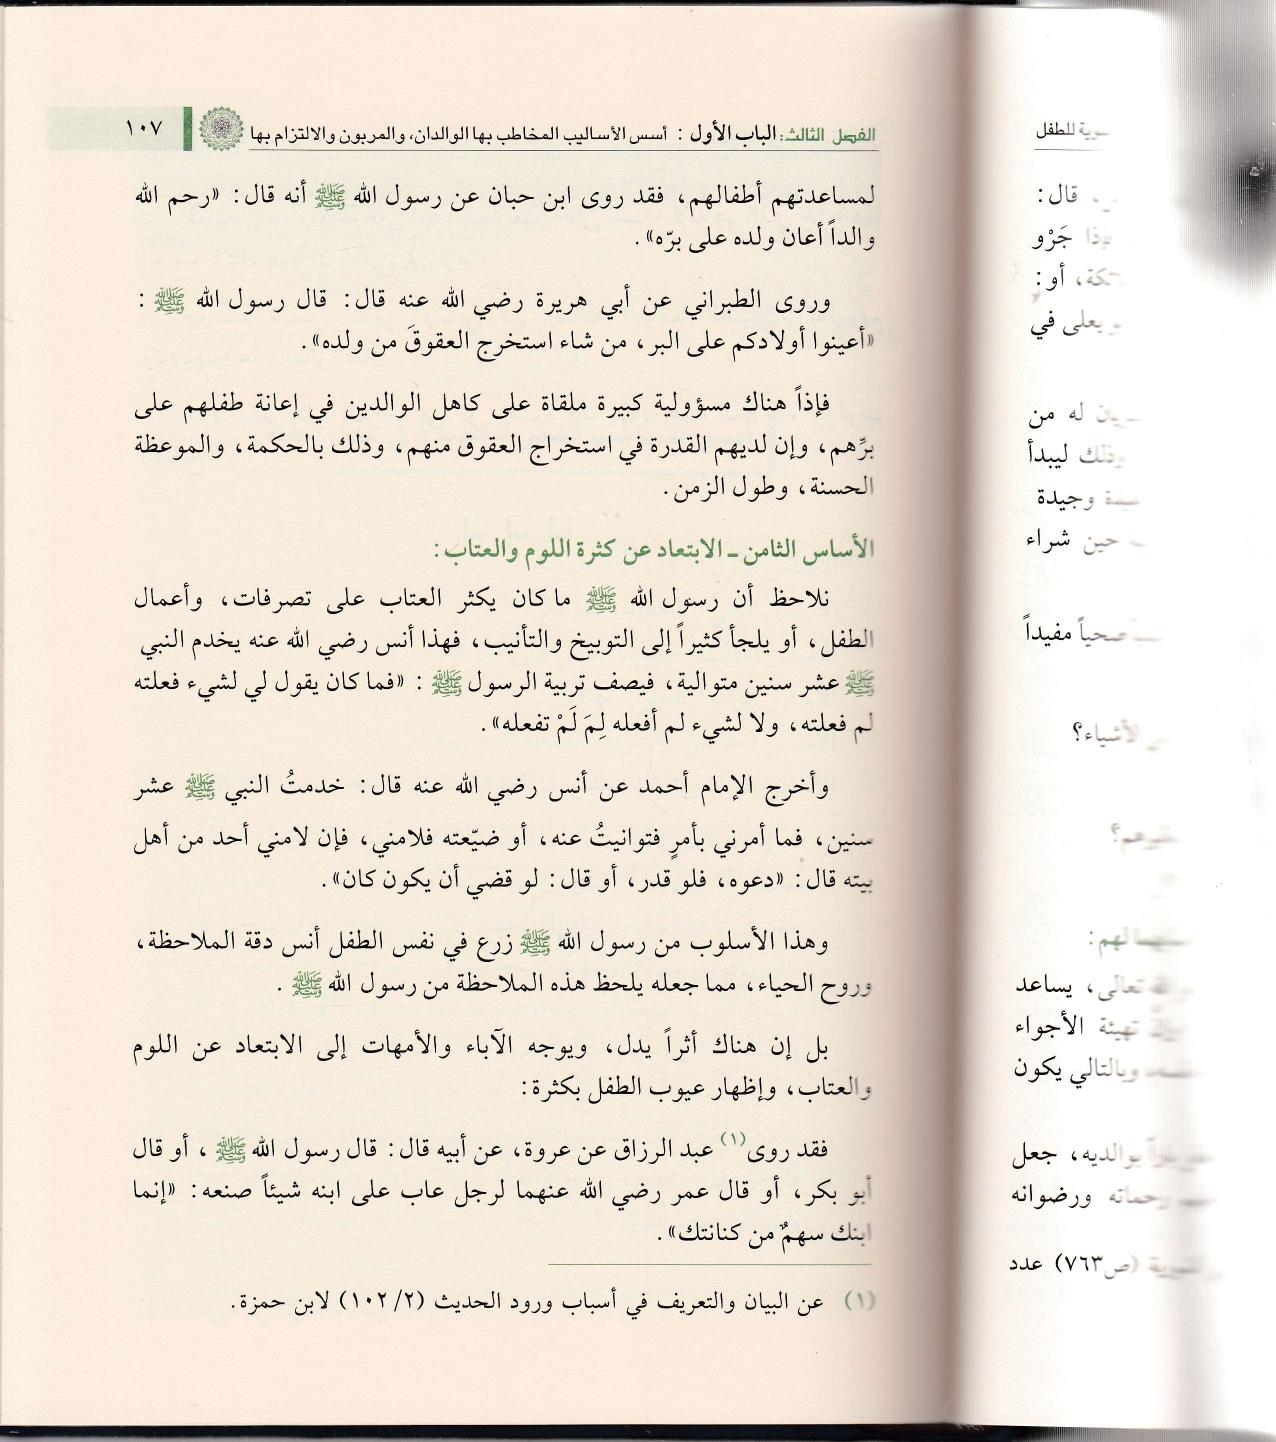 الفصل الثالث: الباب الأول : أسس الأساليب المخاطب بها الوالدان، والمربون والالتزام بها ١٠٧
لمساعدتهم أطفالهم، فقد روى ابن حبان عن رسول الله ﷺ أنه قال: «رحم الله
والداً أعان ولده على برّه».
وروى الطبراني عن أبي هريرة رضي الله عنه قال: قال رسول الله ﷺ :
«أعينوا أولادكم على البر، من شاء استخرج العقوقَ من ولده».
فإذاً هناك مسؤولية كبيرة ملقاة على كاهل الوالدين في إعانة طفلهم على
برِّهم، وإن لديهم القدرة في استخراج العقوق منهم، وذلك بالحكمة، والموعظة
الحسنة، وطول الزمن.
الأساس الثامن ـ الابتعاد عن كثرة اللوم والعتاب:
نلاحظ أن رسول الله ﷺ ما كان يكثر العتاب على تصرفات، وأعمال
الطفل، أو يلجأ كثيراً إلى التوبيخ والتأنيب، فهذا أنس رضي الله عنه يخدم النبي
ﷺ عشر سنين متوالية، فيصف تربية الرسول ﷺ : «فما كان يقول لي لشيء فعلته
لم فعلته، ولا لشيء لم أفعله لِمَ لَمْ تفعله».
وأخرج الإمام أحمد عن أنس رضي الله عنه قال: خدمتُ النبي ﷺ عشر
سنين، فما أمرني بأمرٍ فتوانيتُ عنه، أو ضيّعته فلامني، فإن لامني أحد من أهل
بيته قال: «دعوه، فلو قدر، أو قال: لو قضي أن يكون كان».
وهذا الأسلوب من رسول الله ﷺ زرع في نفس الطفل أنس دقة الملاحظة،
وروح الحياء، مما جعله يلحظ هذه الملاحظة من رسول الله ﷺ .
بل إن هناك أثراً يدل، ويوجه الآباء والأمهات إلى الابتعاد عن اللوم
والعتاب، وإظهار عيوب الطفل بكثرة:
فقد روى(١) عبد الرزاق عن عروة، عن أبيه قال: قال رسول الله ﷺ ، أو قال
أبو بكر، أو قال عمر رضي الله عنهما لرجل عاب على ابنه شيئاً صنعه: «إنما
ابنك سهمٌ من كنانتك».
(١) عن البيان والتعريف في أسباب ورود الحديث (٢/ ١٠٢) لابن حمزة.
للطفل
قال:
جَرْو
أو:
يعلى في
له من
ليبدأ
وجيدة
حين شراء
مفيداً
الأشياء؟
تعالى، يساعد
تهيئة الأجواء
وبالتالي يكون
بوالديه، جعل
ورضوانه
(ص٧٦٣) عدد